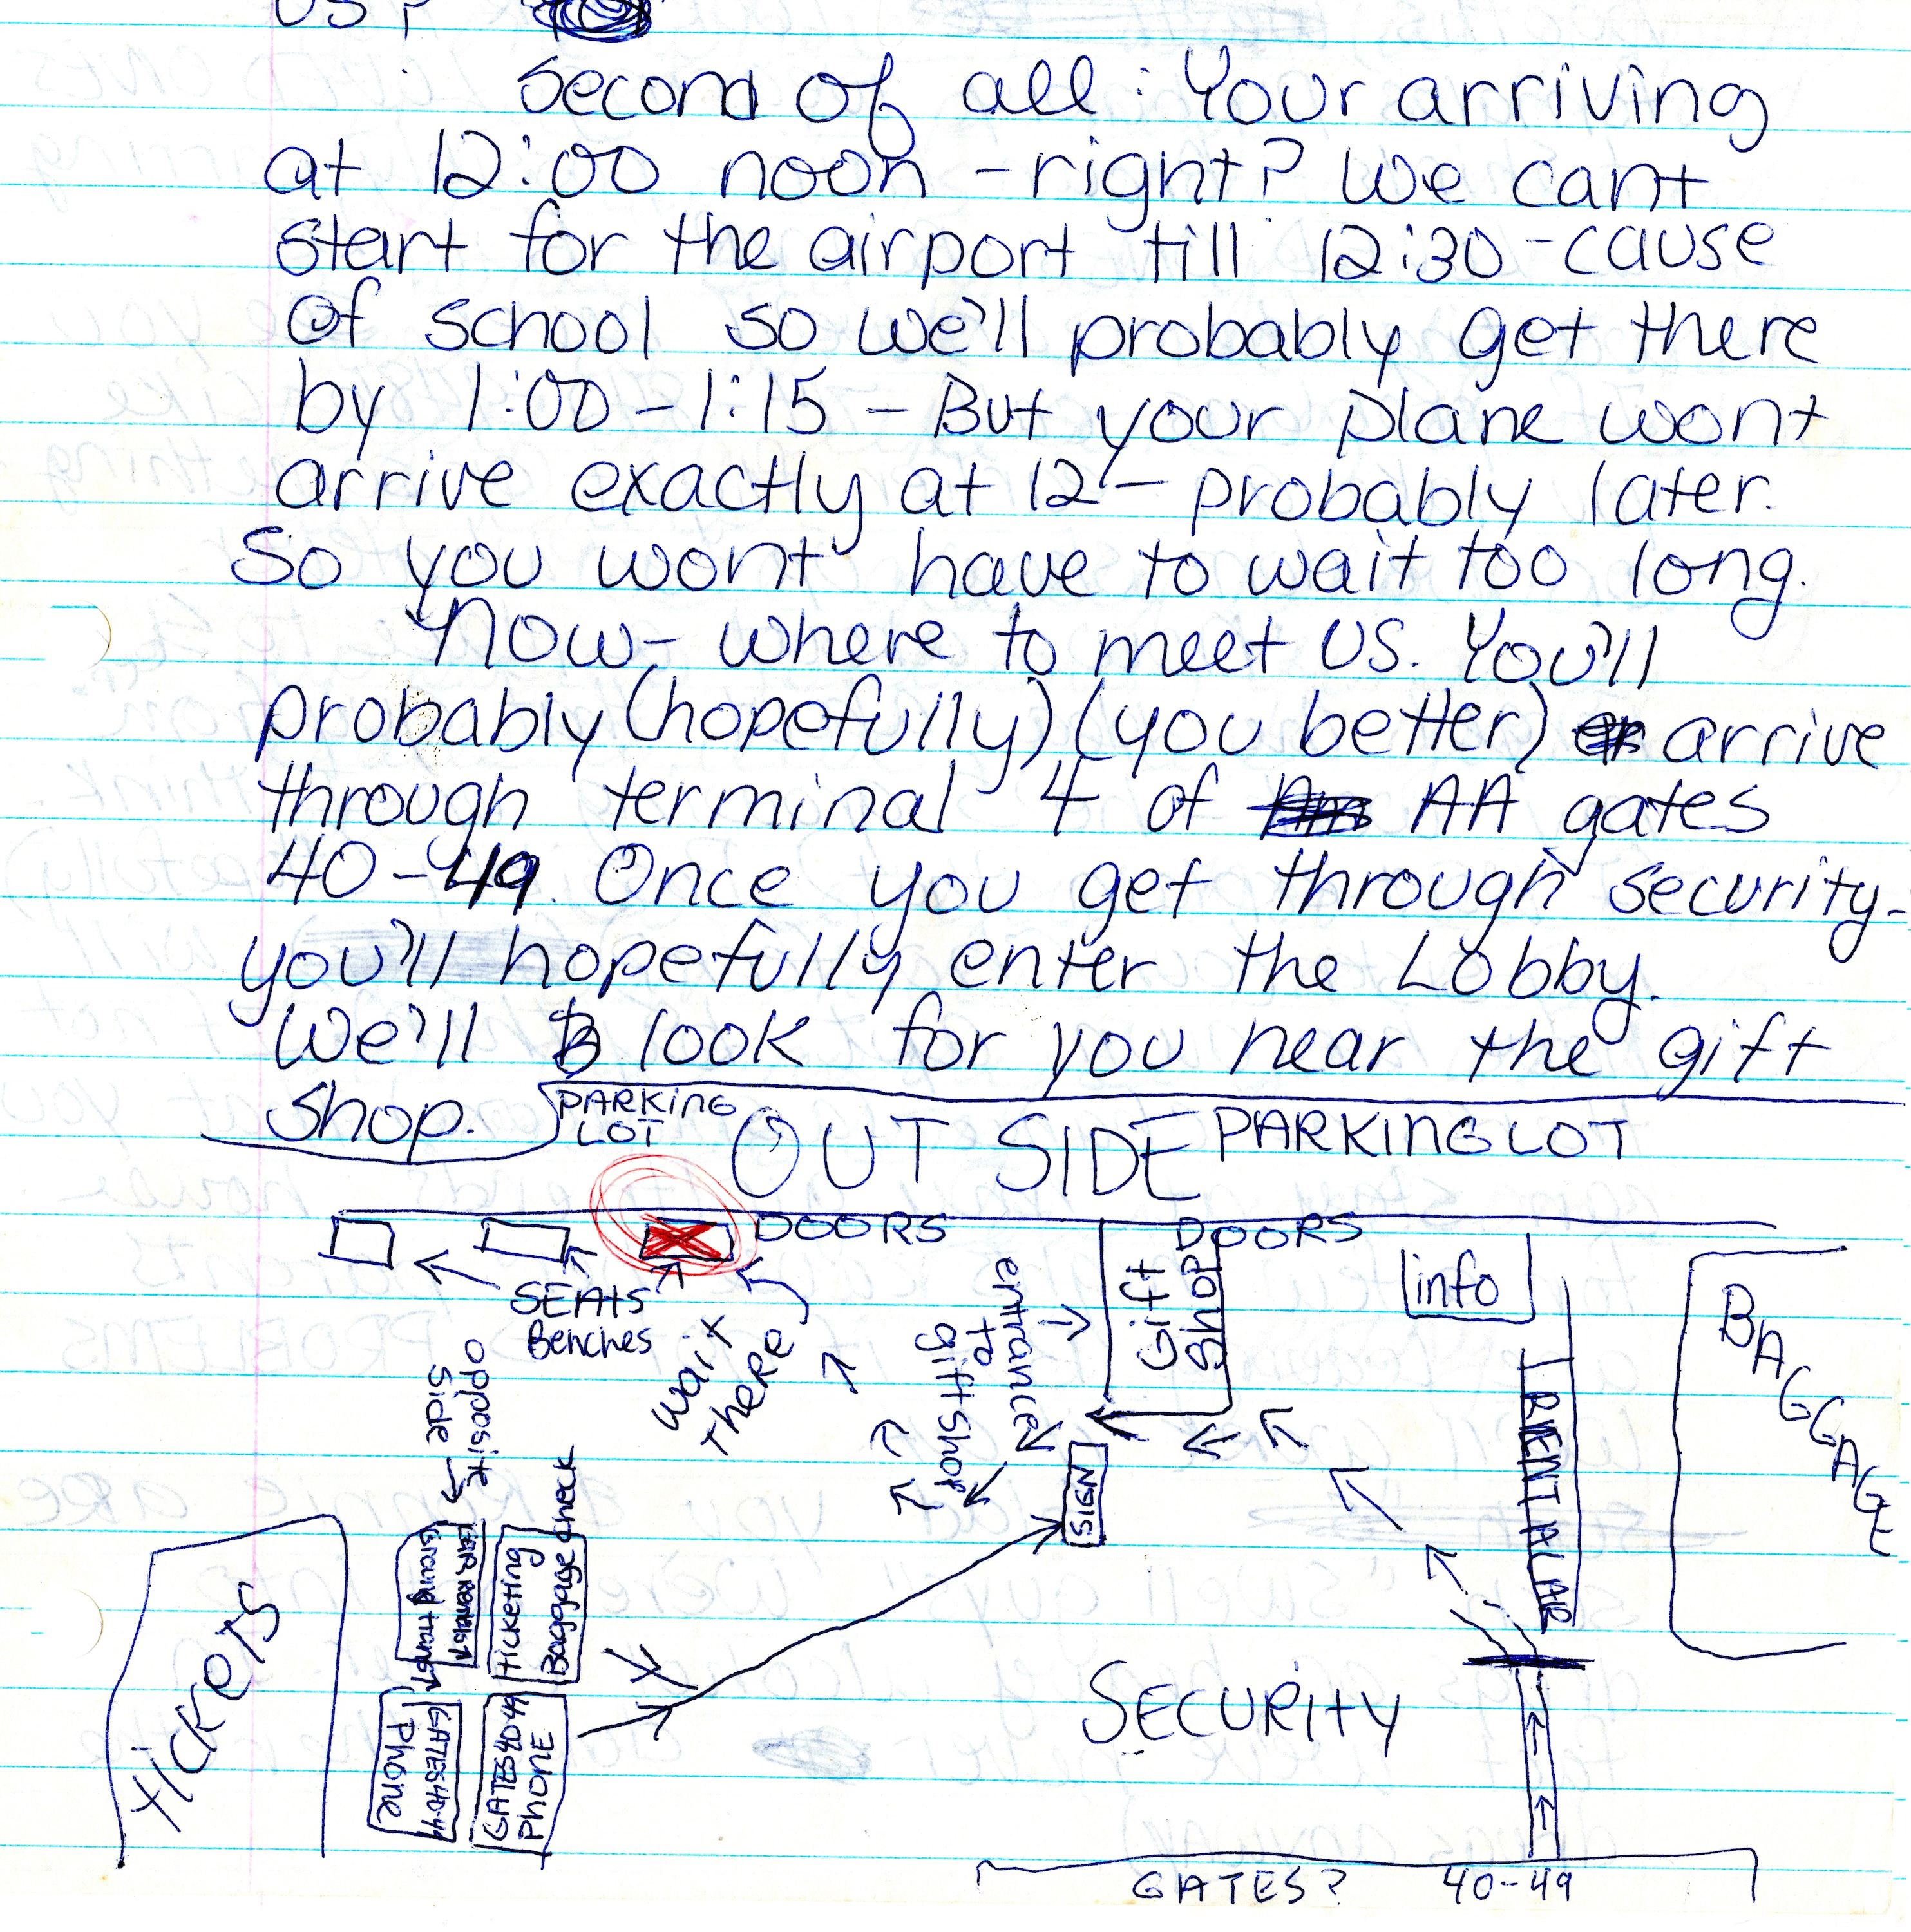 US?
Second of all: Your arriving
at 12:00 noon - right? We cant
start for the airport till 12:30 - cause
of school so we'll probably get there
by 1:00 - 1:15 - But your plane wont
arrive exactly at 12 - probably later.
So you wont have to wait too long.
Now - where to meet US. You'll
probably (hopefully) (you better) arrive
through terminal 4 of AA gates
40-49. Once you get through security -
you'll hopefully enter the Lobby.
We'll look for you near the gift
shop.
PARKING
LOT
OUT SIDE PARKING LOT
DOORS
DOORS
SEATS
Benches
wait
THERE
entrance
to
gift shop
Gift
Shop
info
RENT A CAR
BAGGAGE
opposite
side
SIGN
Tickets
CAR RENTALS
Ground trans
ticketing
Baggage check
GATES 40-49
Phone
GATES 40-49
Phone
SECURITY
GATES? 40-49